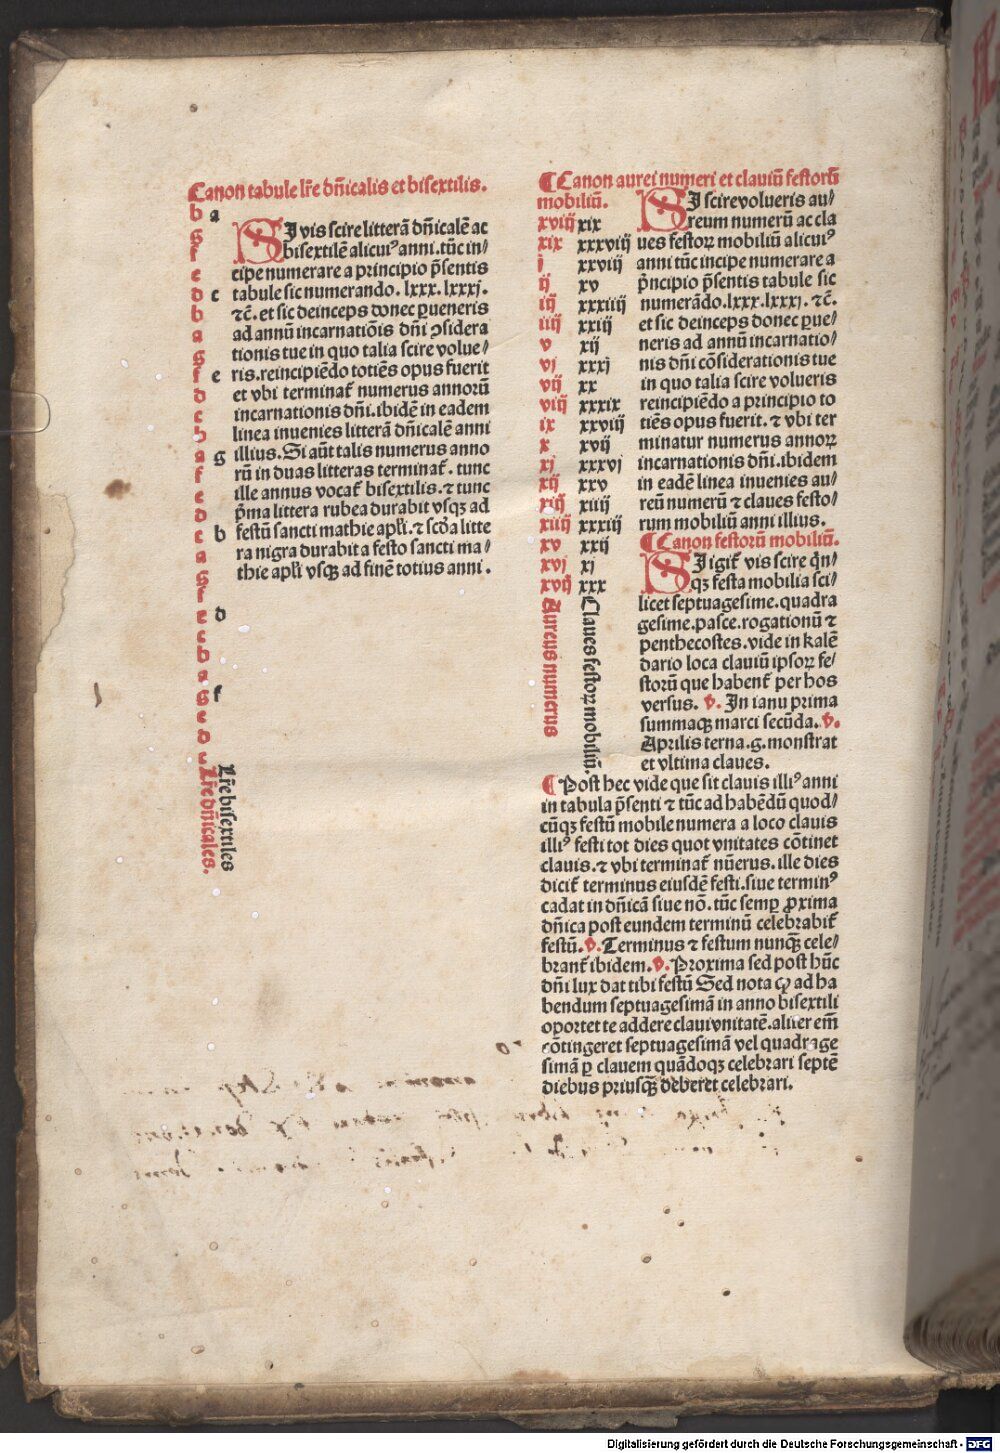 Canon tabule lr̄e dn̄icalis et bisextilis.
b a
g
f
e
d c
b
a
g
f e
d
c
b
a g
f
e
d
c b
a
g
f
e d
c
b
a
g f
e
d
c
Lr̄e dn̄icales.
Lr̄e bisextiles
SI vis scire litterā dn̄icalē ac
bisextilē alicuiꝰ anni. tūc in/
cipe numerare a principio p̄sentis
tabule sic numerando. lxxx. lxxxj.
⁊c̄. et sic deinceps donec ꝑueneris
ad annū incarnatiōis dn̄i ꝯsidera
tionis tue in quo talia scire volue/
ris. reincipiēdo totiēs opus fuerit
et vbi terminat᷑ numerus annorū
incarnationis dn̄i. ibidē in eadem
linea inuenies litterā dn̄icalē anni
illius. Si aūt talis numerus anno
rū in duas litteras terminat᷑. tunc
ille annus vocat᷑ bisextilis. ⁊ tunc
p̄ma littera rubea durabit vsqꝫ ad
festū sancti mathie apl̄i. ⁊ scd̄a litte
ra nigra durabit a festo sancti ma/
thie apl̄i vsqꝫ ad finē totius anni.
¶ Canon aurei numeri et clauiū festorū
mobiliū.
xviij xix
xix xxxviij
j xxviij
ij xv
iij xxxiiij
iiij xxiij
v xij
vj xxxj
vij xx
viij xxxix
ix xxviij
x xvij
xj xxxvj
xij xxv
xiij xiiij
xiiij xxxiij
xv xxij
xvj xj
xvij xxx
Aureus numerus
Claues festoꝝ mobiliū.
SI scire volueris au/
reum numerū ac cla
ues festoꝝ mobiliū alicuiꝰ
anni tūc incipe numerare a
p̄ncipio p̄sentis tabule sic
numerādo. lxxx. lxxxj. ⁊c̄.
et sic deinceps donec ꝑue/
neris ad annū incarnatio/
nis dn̄i cōsiderationis tue
in quo talia scire volueris
reincipiēdo a principio to
tiēs opus fuerit. ⁊ vbi ter
minatur numerus annoꝝ
incarnationis dn̄i. ibidem
in eadē linea inuenies au/
reū numerū ⁊ claues festo/
rum mobiliū anni illius.
¶ Canon festorū mobiliū.
SI igit᷑ vis scire qn̄/
qꝫ festa mobilia sci/
licet septuagesime. quadra
gesime. pasce. rogationū ⁊
penthecostes. vide in kalē
dario loca clauiū ipsoꝝ fe/
storū que habent᷑ per hos
versus. V. In ianu prima
summaqꝫ marci secūda. V.
Aprilis terna. g. monstrat
et vltima claues.
¶ Post hec vide que sit clauis illiꝰ anni
in tabula p̄senti ⁊ tūc ad habēdū quod/
cūqꝫ festū mobile numera a loco clauis
illiꝰ festi tot dies quot vnitates cōtinet
clauis. ⁊ vbi terminat᷑ nūerus. ille dies
dicit᷑ terminus eiusdē festi. siue terminꝰ
cadat in dn̄icā siue nō. tūc semꝑ ꝓxima
dn̄ica post eundem terminū celebrabit᷑
festū. V. Terminus ⁊ festum nunqꝫ̄ cele/
brant᷑ ibidem. V. Proxima sed post hūc
dn̄i lux dat tibi festū Sed nota ꝙ ad ha
bendum septuagesimā in anno bisextili
oportet te addere claui vnitatē. aliter em̄
cōtingeret septuagesimā vel quadrage
simā ꝑ clauem quādoqꝫ celebrari septē
diebus priusqꝫ̄ deberet celebrari.
Digitalisierung gefördert durch die Deutsche Forschungsgemeinschaft - DFG